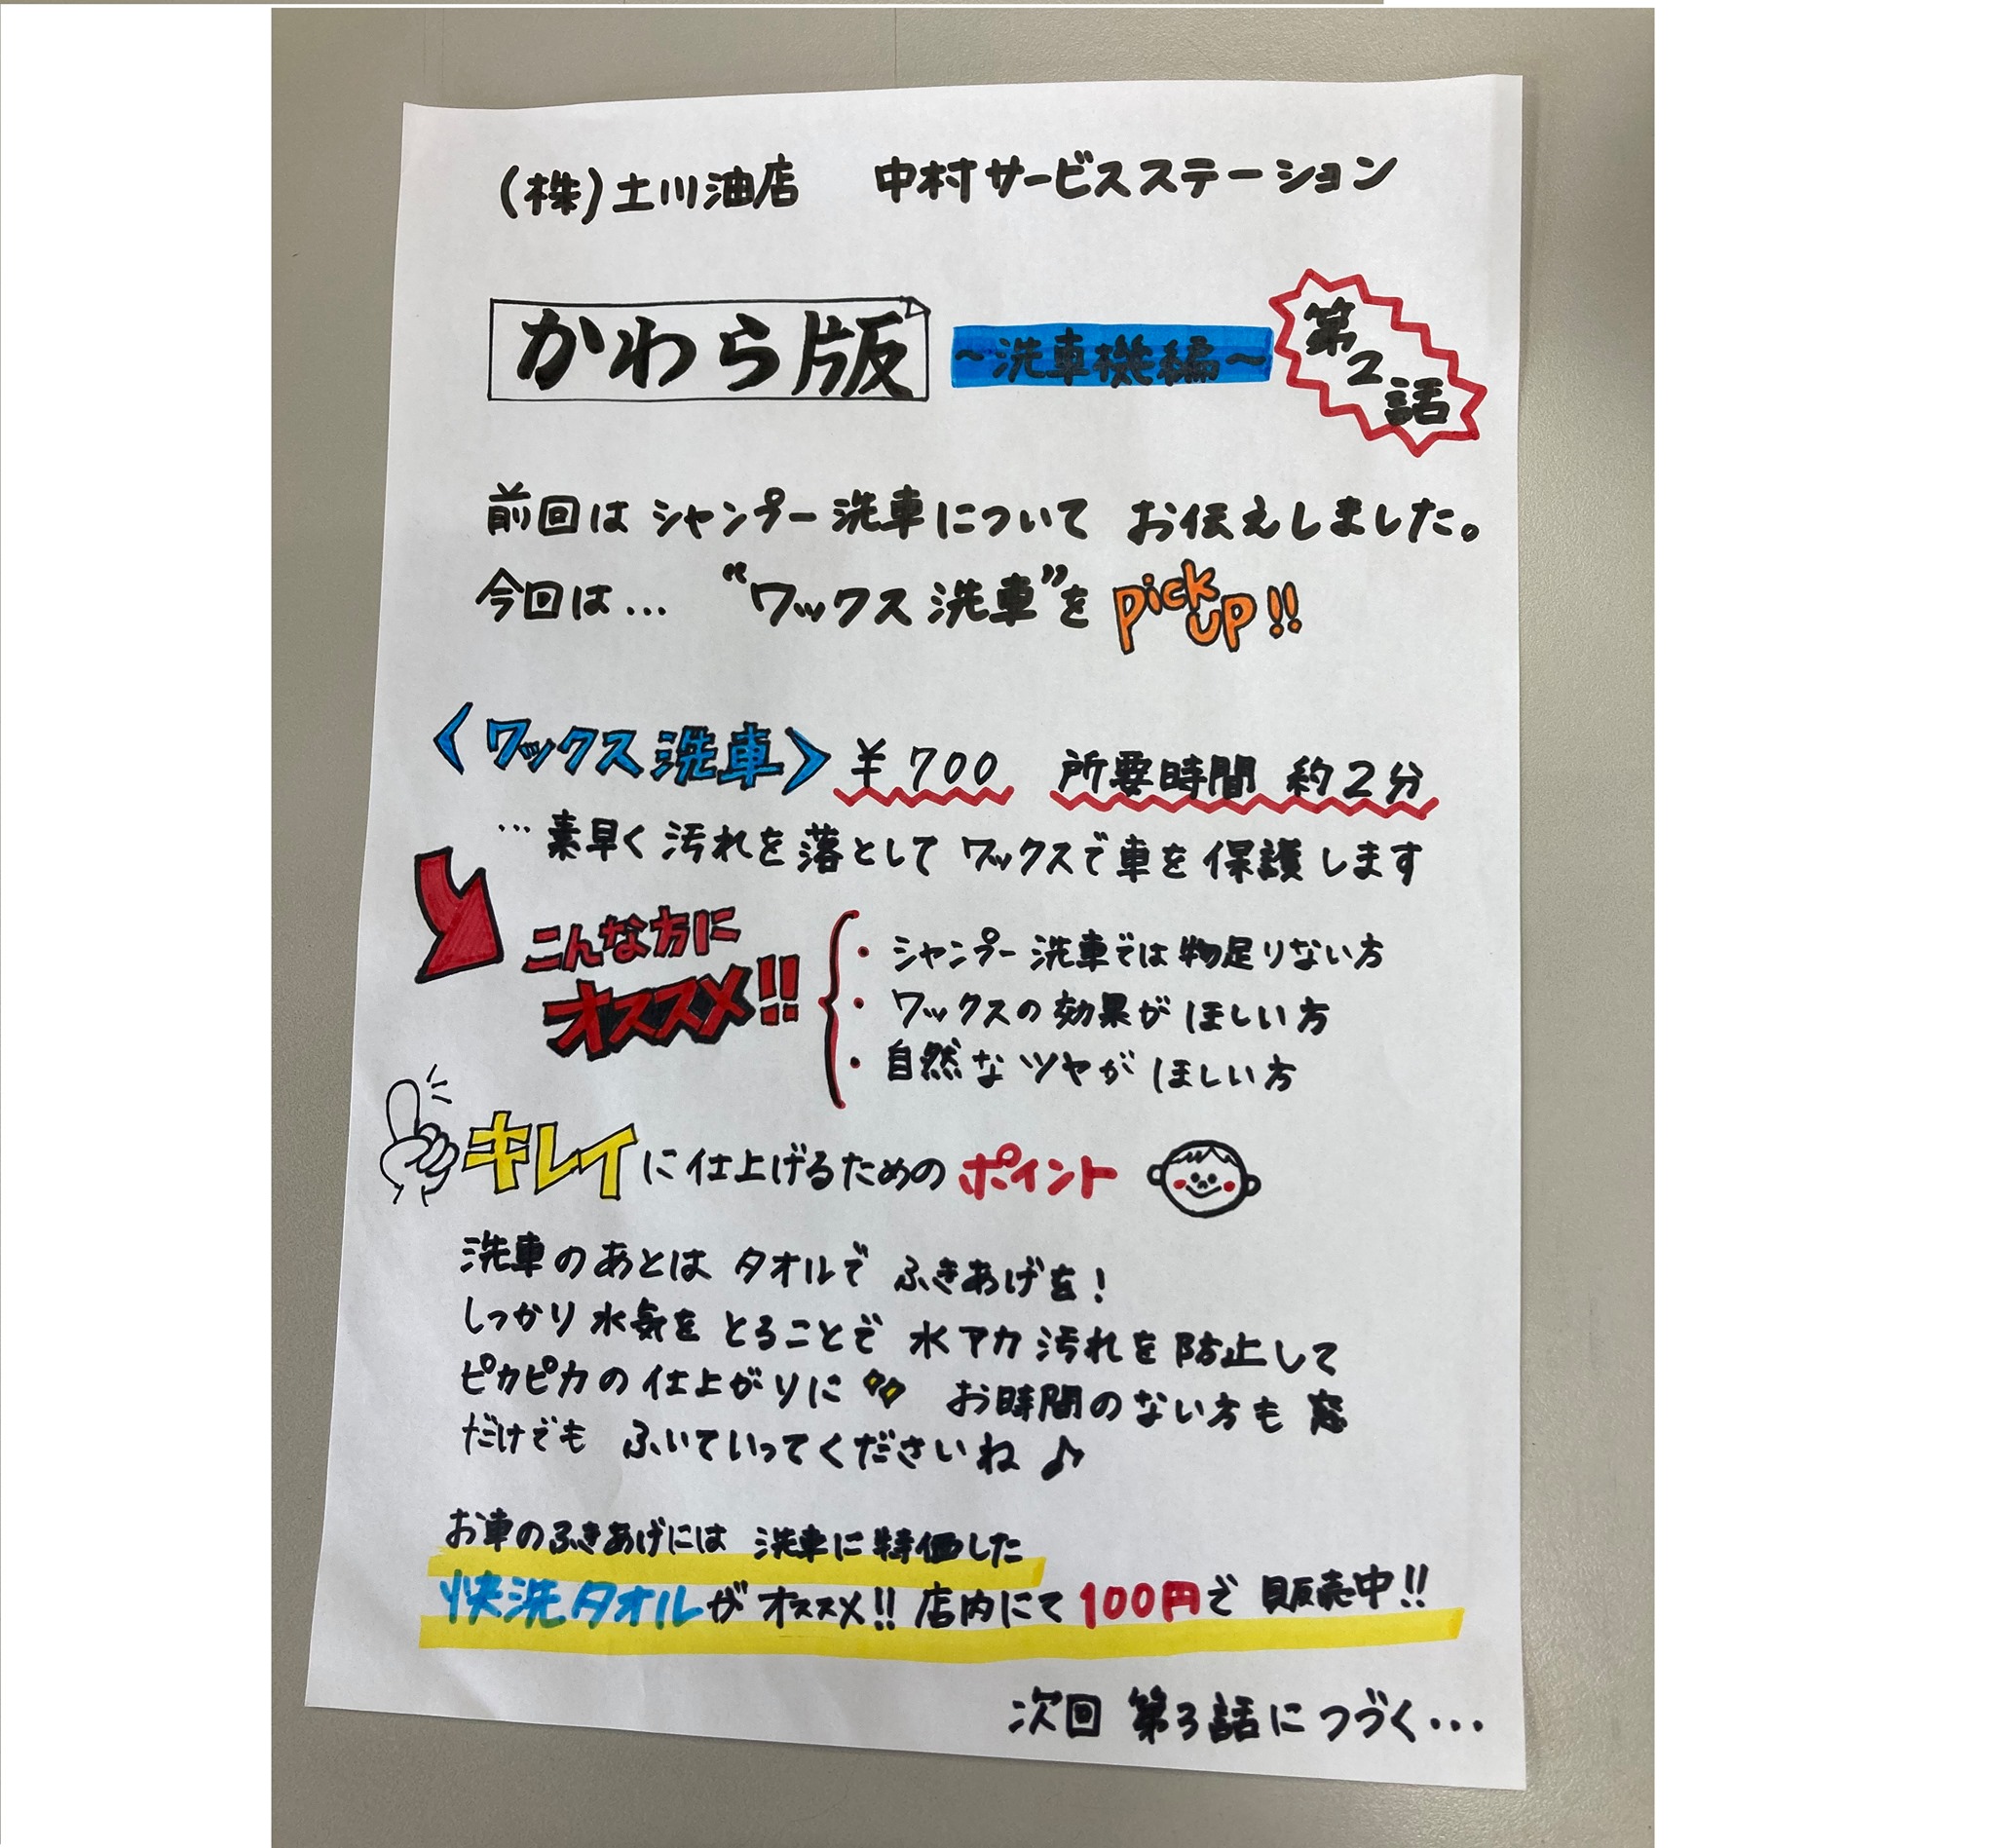 (株)土川油店 中村サービスステーション
かわら版 ～洗車機編～ 第2話
前回は シャンプー洗車について お伝えしました。
今回は… "ワックス洗車"を pick up!!
〈ワックス洗車〉 ¥700 所要時間 約2分
…素早く汚れを落として ワックスで車を保護します
こんな方に
オススメ!!
・シャンプー洗車では物足りない方
・ワックスの効果が ほしい方
・自然なツヤが ほしい方
キレイに仕上げるための ポイント
洗車のあとは タオルで ふきあげを!
しっかり水気を とることで 水アカ汚れを防止して
ピカピカの仕上がりに お時間のない方も 窓
だけでも ふいていってくださいね♪
お車のふきあげには 洗車に特価した
快洗タオルが オススメ!! 店内にて 100円で 販売中!!
次回 第3話につづく…